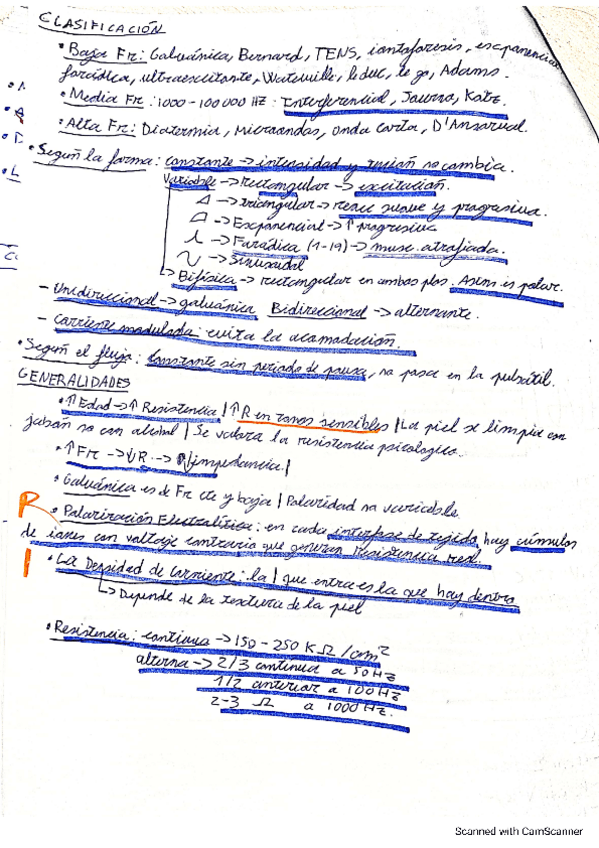 CLASIFICACIÓN
• Baja Fr: Galvánica, Bernard, TENS, iontoforesis, exponencial
farádica, ultraexcitante, Wateville, leduc, le go, Adams.
• Media Fr: 1000-100000 HZ: Interferencial, Kotz.
• Alta Fr: Diatermia, Microondas, onda corta, D'Ansorval.
• Según la forma: constante → intensidad y tensión no cambia.
Variable → rectangular → excitación.
→ triangular → suave y progresiva.
→ Exponencial → ↑ progresiva
→ Farádica (1-19) → musc. atrofiada.
→ Sinusoidal
→ Bifásica → rectangular en ambos polos. Asim. es polar.
- Unidireccional → galvánica Bidireccional → alternante.
- Corriente modulada: evita la acomodación.
• Según el flujo: Constante sin periodo de pausa, no pasa en la pulsátil.
GENERALIDADES
• ↑ Edad → ↑ Resistencia | ↑ R en zonas sensibles | La piel se limpia con
jabón no con alcohol | Se valora la resistencia psicológica.
• ↑ Fr → ↓ R → impedancia. |
• Galvánica es de Fr cte y baja | Polaridad no variable.
R
• Polarización Electrolítica: en cada interfase de tejido hay cúmulos
de iones con voltaje contrario que generan resistencia real.
I
• La Densidad de Corriente: la I que entra es la que hay dentro
→ Depende de la textura de la piel
• Resistencia: continua → 150-250 KΩ/cm²
alterna → 2/3 continua a 50 Hz
1/2 anterior a 100 Hz
2-3 Ω a 1000 Hz.
Scanned with CamScanner